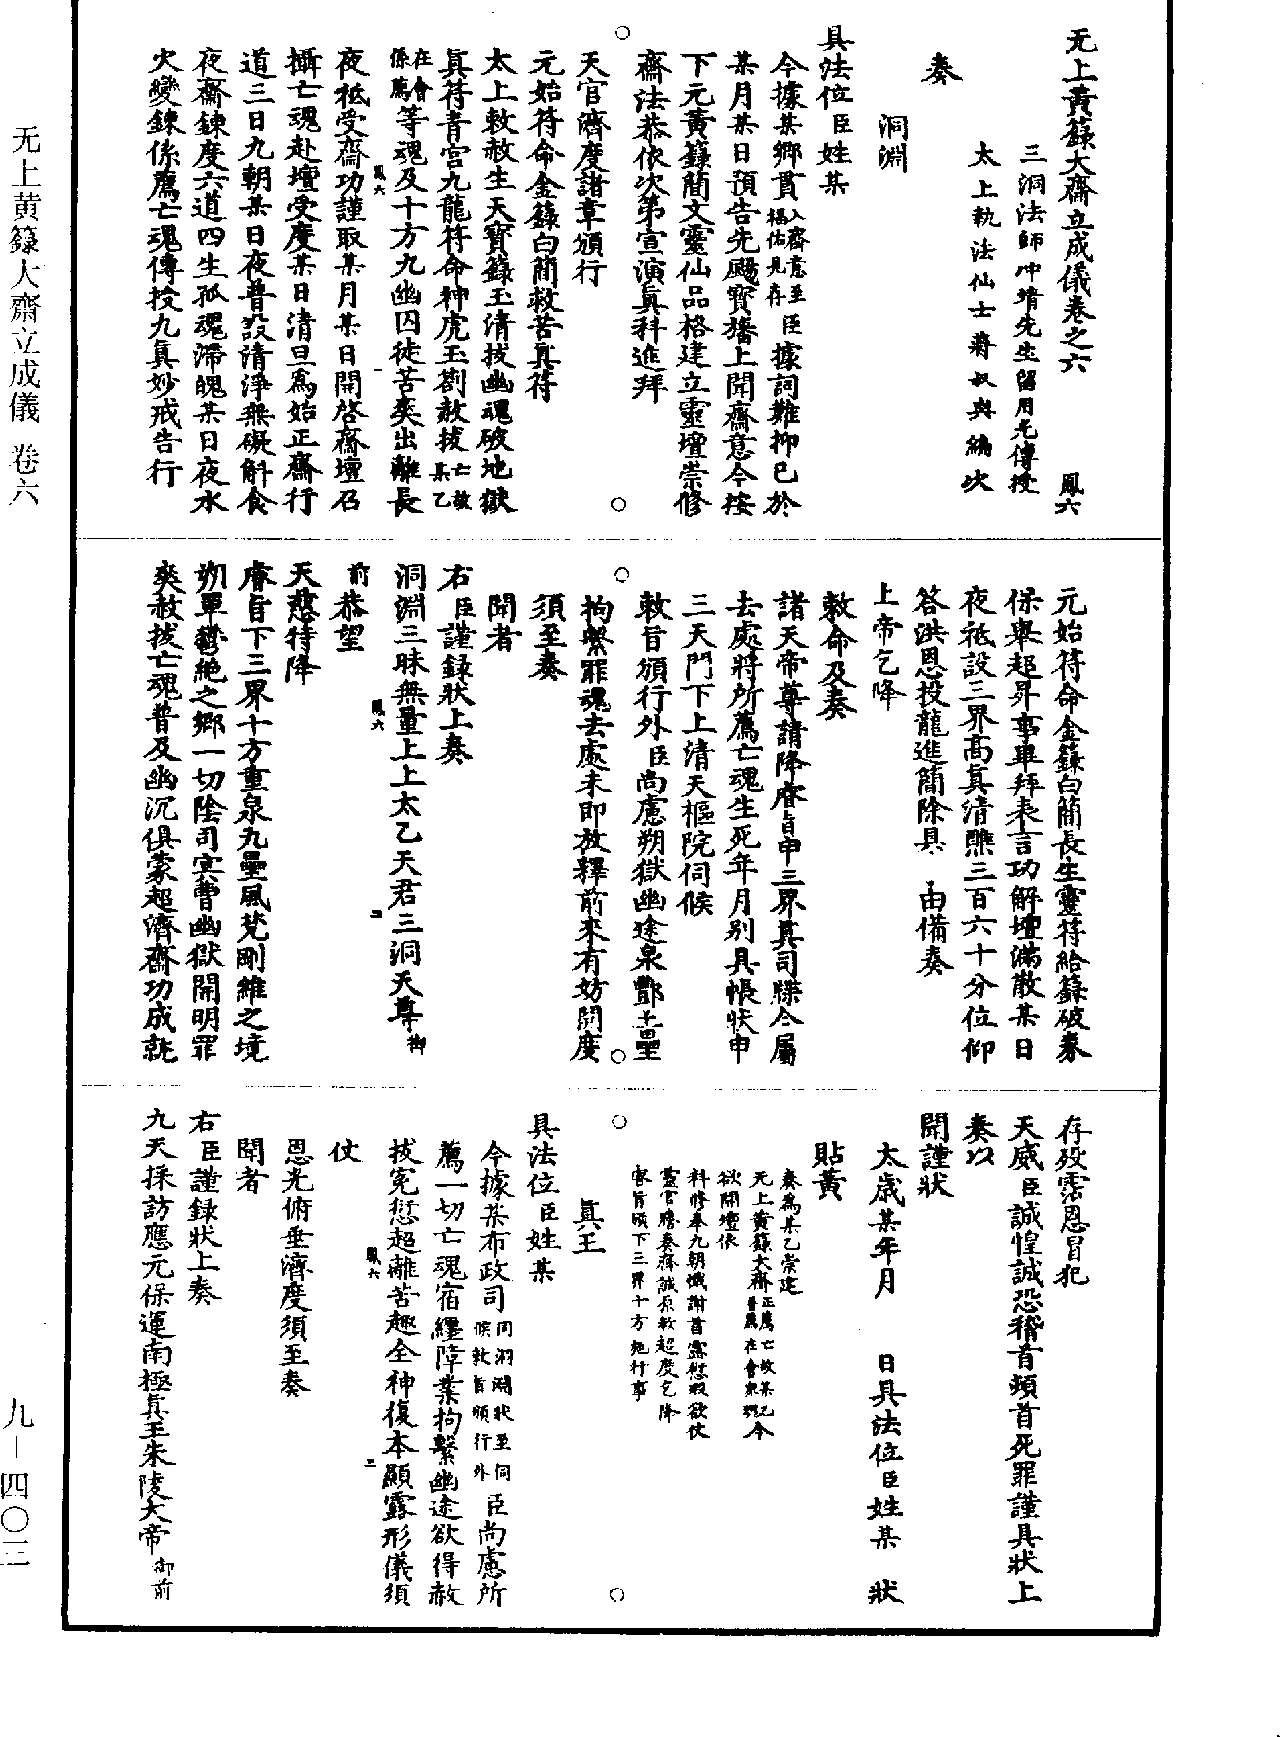 无上黄籙大齋立成儀 卷六
九—四〇三
无上黃籙大齋立成儀卷之六 鳳六
三洞法師冲靖先生留用光傳授
太上執法仙士蔣叔輿編次
奏
洞淵
具法位臣姓某
今據某鄉貫入齋意至福佑見存臣據詞難抑已於
某月某日預告先颺寶旛上聞齋意今按
下元黃籙簡文靈仙品格建立靈壇崇修
齋法恭依次第宣演眞科進拜
天官濟度諸章頒行
元始符命金籙白簡救苦眞符
太上敕赦生天寶籙玉清拔幽魂破地獄
眞符青宮九龍符命神虎玉劄赦拔亡故某乙
在會係薦等魂及十方九幽囚徒苦爽出離長
鳳六 一
夜祗受齋功謹取某月某日開啓齋壇召
攝亡魂赴壇受度某日清旦爲始正齋行
道三日九朝某日夜普設清淨無礙斛食
夜齋鍊度六道四生孤魂滯魄某日夜水
火變鍊係薦亡魂傳授九眞妙戒告行
元始符命金籙白簡長生靈符給籙破券
保舉超昇事畢拜表言功解壇滿散某日
夜祗設三界高眞清醮三百六十分位仰
答洪恩投龍進簡除具 由備奏
上帝乞降
敕命及奏
諸天帝尊請降睿旨申三界眞司牒合屬
去處將所薦亡魂生死年月別具帳狀申
三天門下上清天樞院伺候
敕旨頒行外臣尚慮朔獄幽途泉酆壘
拘繫罪魂去處未即放釋前來有妨開度
須至奏
聞者
右臣謹錄狀上奏
洞淵三昧無量上上太乙天君三洞天尊御
鳳六 二
前恭望
天慈特降
睿旨下三界十方重泉九壘風梵剛維之境
朔單鬱絕之鄉一切陰司冥曹幽獄開明罪
爽赦拔亡魂普及幽沉俱蒙超濟齋功成就
存歿霑恩冒犯
天威臣誠惶誠恐稽首頓首死罪謹具狀上
奏以
聞謹狀
太歲某年月 日具法位臣姓某 狀
貼黃
奏爲某乙崇建
无上黃籙大齋正薦亡故某乙普薦在會衆魂今
欲開壇依
科修奉九朝懺謝首露愆瑕欲仗
靈官騰奏齋誠原赦超度乞降
睿旨頒下三界十方施行事
眞王
具法位臣姓某
今據某布政司同洞淵狀至伺候敕旨頒行外臣尚慮所
薦一切亡魂宿纏障業拘繫幽途欲得赦
拔冤愆超離苦趣全神復本顯露形儀須
鳳六 三
仗
恩光俯垂濟度須至奏
聞者
右臣謹錄狀上奏
九天採訪應元保運南極眞王朱陵大帝御前